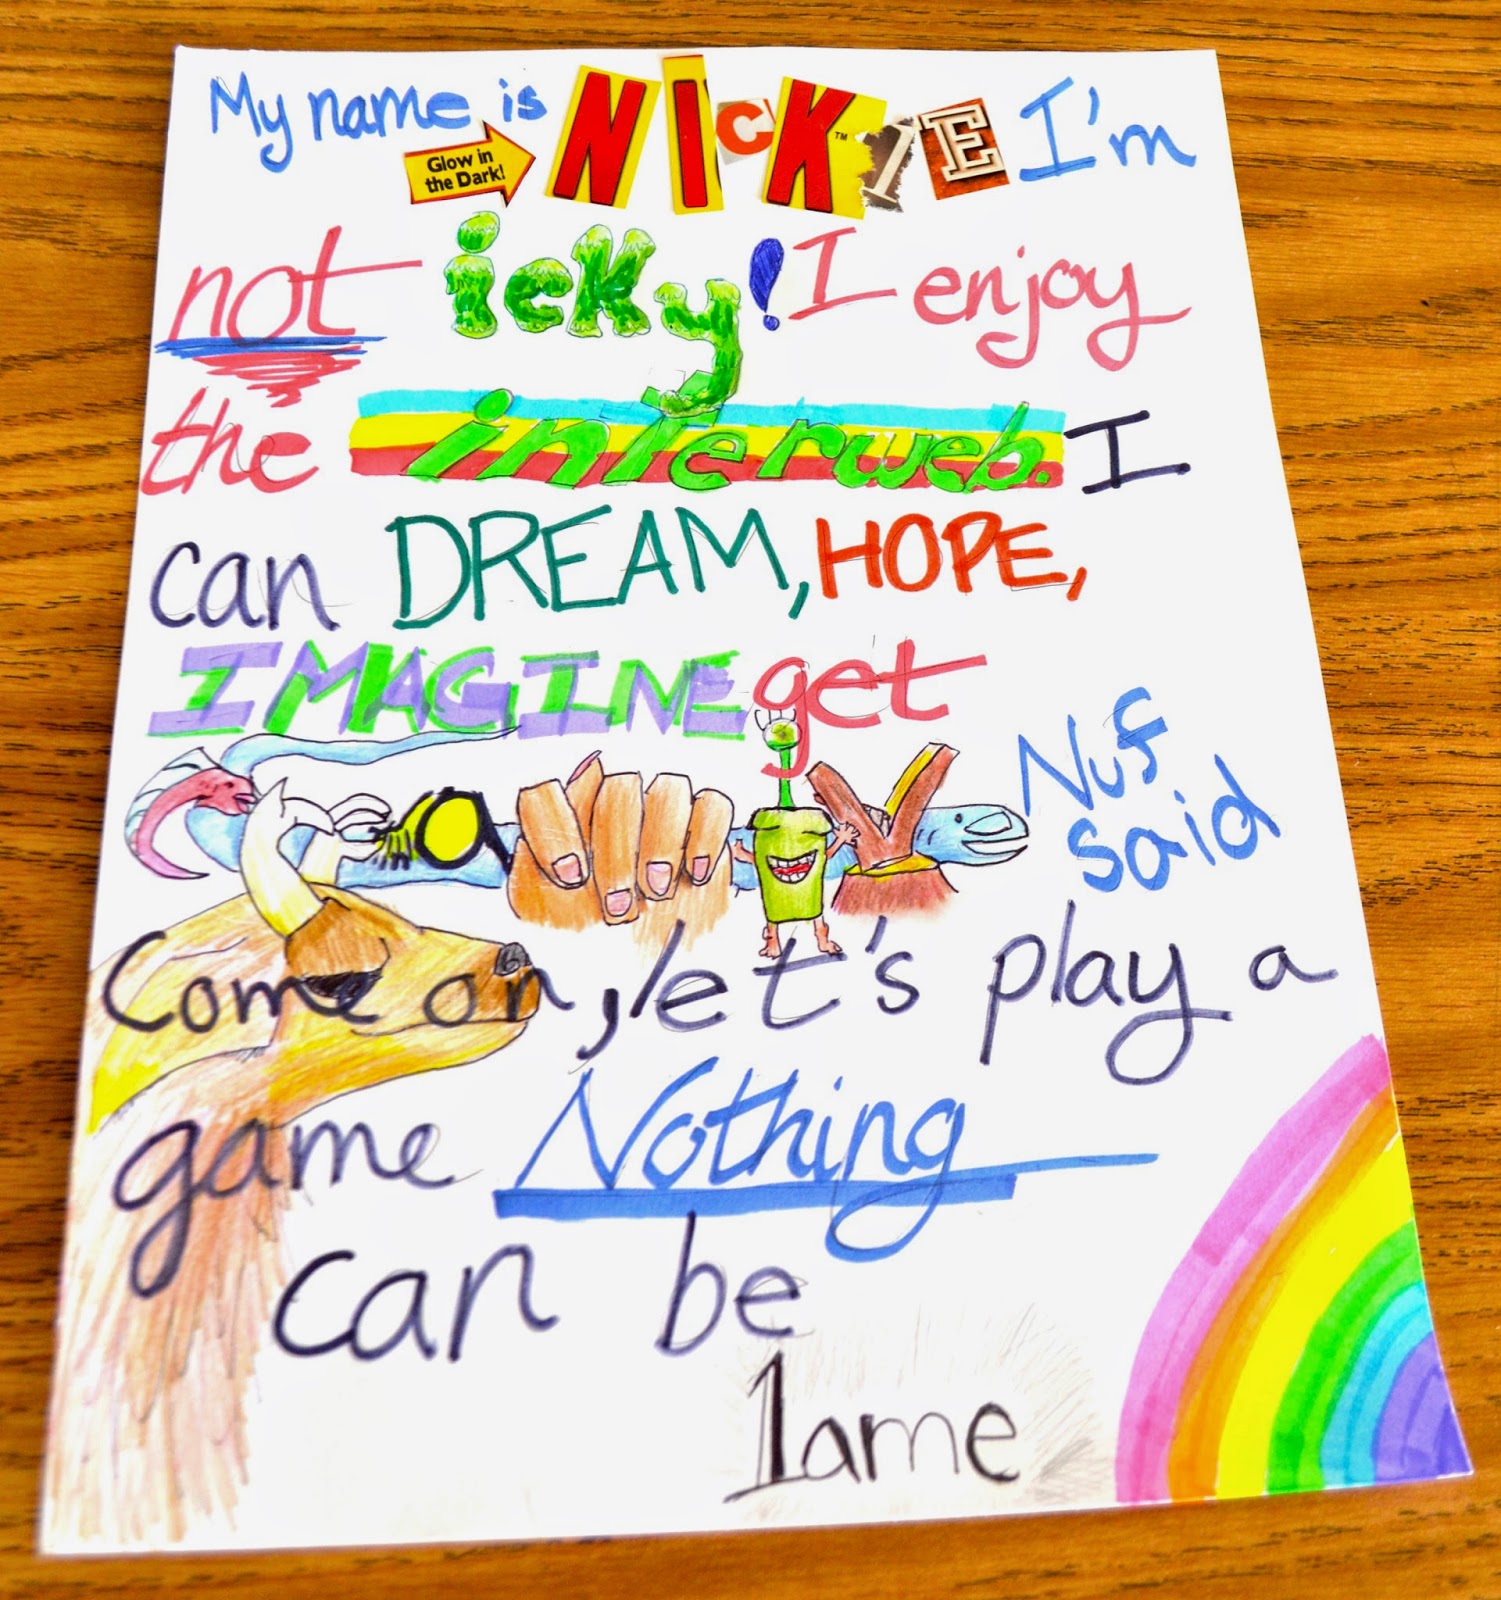 My name is NICKIE I'm
Glow in
the Dark!
TM
not icky! I enjoy
the interweb. I
can DREAM, HOPE,
IMAGINE get
Nuf
said
Come on, let's play a
game Nothing
can be
lame